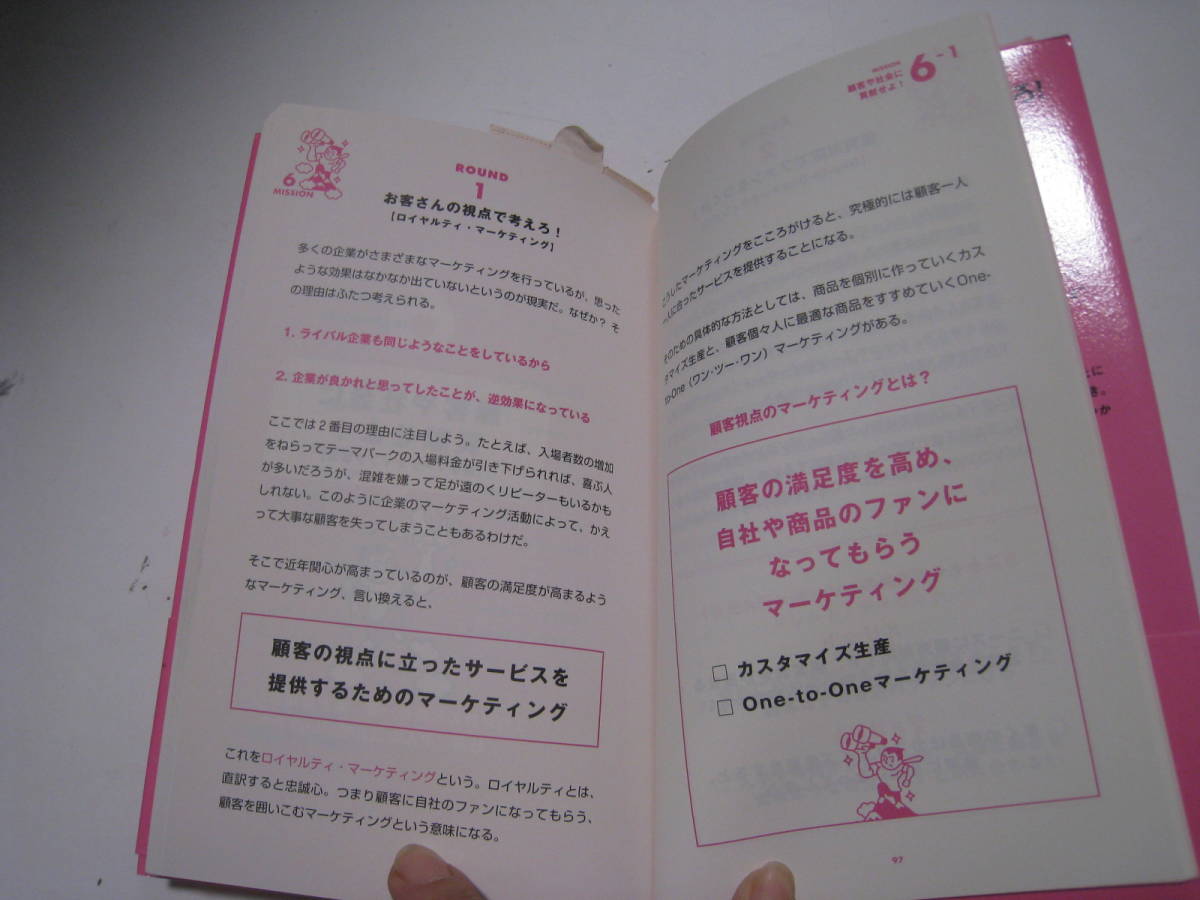 6
MISSION
ROUND
1
お客さんの視点で考えろ!
[ロイヤルティ・マーケティング]
多くの企業がさまざまなマーケティングを行っているが、思った
ような効果はなかなか出ていないというのが現実だ。なぜか? そ
の理由はふたつ考えられる。
1. ライバル企業も同じようなことをしているから
2. 企業が良かれと思ってしたことが、逆効果になっている
ここでは2番目の理由に注目しよう。たとえば、入場者数の増加
をねらってテーマパークの入場料金が引き下げられれば、喜ぶ人
が多いだろうが、混雑を嫌って足が遠のくリピーターもいるかも
しれない。このように企業のマーケティング活動によって、かえ
って大事な顧客を失ってしまうこともあるわけだ。
そこで近年関心が高まっているのが、顧客の満足度が高まるよう
なマーケティング、言い換えると、
顧客の視点に立ったサービスを
提供するためのマーケティング
これをロイヤルティ・マーケティングという。ロイヤルティとは、
直訳すると忠誠心。つまり顧客に自社のファンになってもらう、
顧客を囲いこむマーケティングという意味になる。
MISSION
顧客や社会に
貢献せよ!
6-1
こうしたマーケティングをこころがけると、究極的には顧客一人
一人に合ったサービスを提供することになる。
そのための具体的な方法としては、商品を個別に作っていくカス
タマイズ生産と、顧客個々人に最適な商品をすすめていくOne-
to-One(ワン・ツー・ワン)マーケティングがある。
顧客視点のマーケティングとは?
顧客の満足度を高め、
自社や商品のファンに
なってもらう
マーケティング
□ カスタマイズ生産
□ One-to-Oneマーケティング
97